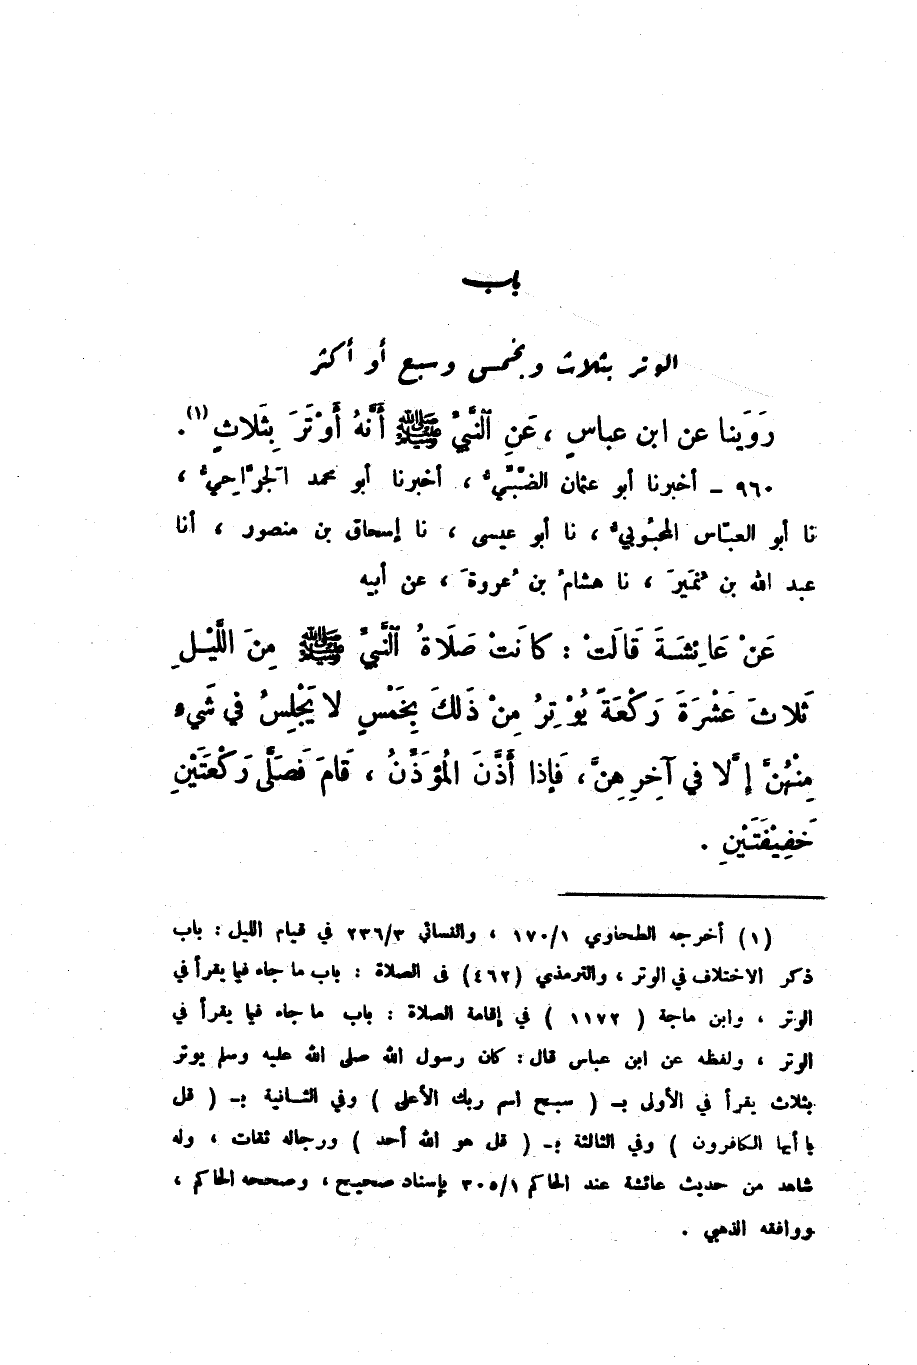 باب
الوتر بثلاث وبخمس وسبع أو أكثر
رَوَينا عن ابن عباسٍ ، عَنِ ٱلنَّبيِّ ﷺ أَنَّهُ أَوْتَرَ بِثَلاثٍ (١) .
٩٦٠ – أخبرنا أبو عثمان الضَّبِّيُّ ، أخبرنا أبو محمد الجرَّاحِيُّ ،
نا أبو العبّاس المحبُوبيُّ ، نا أبو عيسى ، نا إسحاق بن منصور ، أنا
عبد الله بن نُمَيرَ ، نا هشامُ بن عُروةَ ، عن أبيه
عَنْ عَائِشَةَ قَالَتْ : كانَتْ صَلَاةُ ٱلنَّبيِّ ﷺ مِنَ اللَّيْلِ
ثَلاثَ عَشْرَةَ رَكْعَةً يُوْتِرُ مِنْ ذَلكَ بِخَمْسٍ لا يَجْلِسُ في شَيءٍ
مِنْهُنَّ إِلَّا في آخِرِهِنَّ ، فَإذا أَذَّنَ المُؤَذِّنُ ، قَامَ فَصَلَّى رَكْعَتَيْنِ
خَفِيْفَتَيْنِ .
(١) أخرجه الطحاوي ١/١٧٠ ، والنسائي ٣/٢٣٦ في قيام الليل : باب
ذكر الاختلاف في الوتر ، والترمذي (٤٦٢) في الصلاة : باب ما جاء فيما يقرأ في
الوتر ، وابن ماجة ( ١١٧٢ ) في إقامة الصلاة : باب ما جاء فيما يقرأ في
الوتر ، ولفظه عن ابن عباس قال : كان رسول الله صلى الله عليه وسلم يوتر
بثلاث يقرأ في الأولى بـ ( سبح اسم ربك الأعلى ) وفي الثــانية بـ ( قل
يا أيها الكافرون ) وفي الثالثة بـ ( قل هو الله أحد ) ورجاله ثقات ، وله
شاهد من حديث عائشة عند الحاكم ١/٣٠٥ بإسناد صحيح ، وصححه الحاكم ،
ووافقه الذهبي .